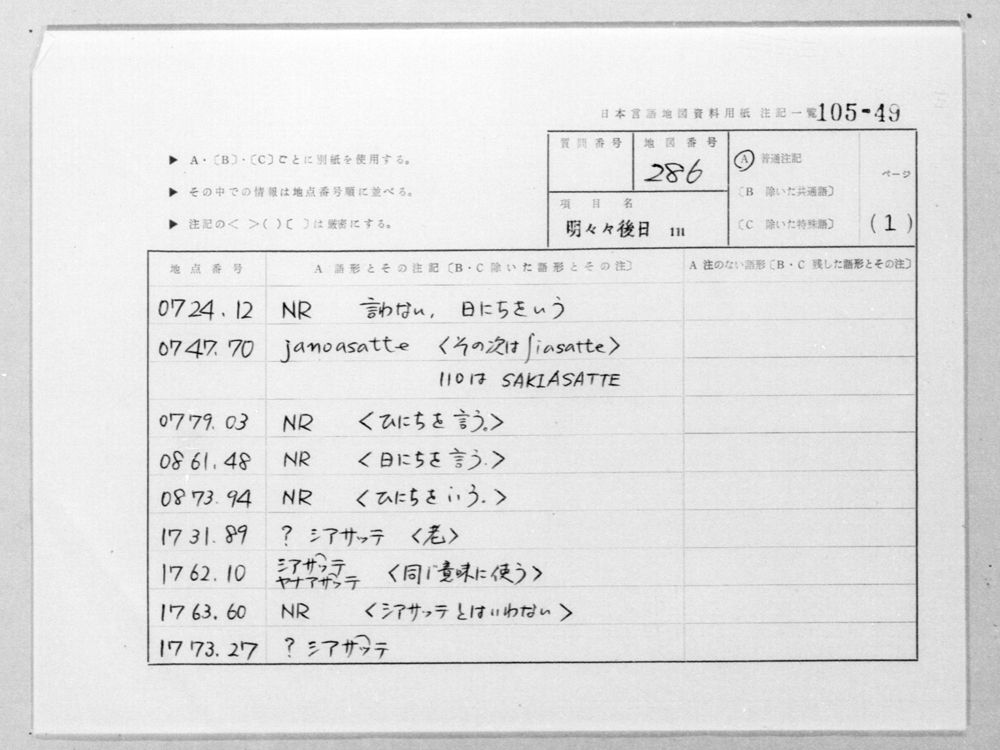 日本言語地図資料用紙 注記一覧 105-49
▶ A・〔B〕・〔C〕ごとに別紙を使用する。
▶ その中での情報は地点番号順に並べる。
▶ 注記の< >( )〔 〕は厳密にする。
質問番号
地図番号
286
項目名
明々々後日 m
Ⓐ 普通注記
〔B 除いた共通語〕
〔C 除いた特殊語〕
ページ
(1)
地点番号 A 語形とその注記〔B・C 除いた語形とその注〕 A 注のない語形〔B・C 残した語形とその注〕
0724.12 NR 言わない, 日にちをいう
0747.70 janoasatte <その次は∫iasatte>
110は SAKIASATTE
0779.03 NR <ひにちを言う。>
0861.48 NR <日にちを言う.>
0873.94 NR <ひにちをいう.>
1731.89 ? シアサッテ <老>
1762.10 シアサッテ
ヤナアサッテ <同じ意味に使う>
1763.60 NR <シアサッテとはいわない>
1773.27 ? シアサッテ